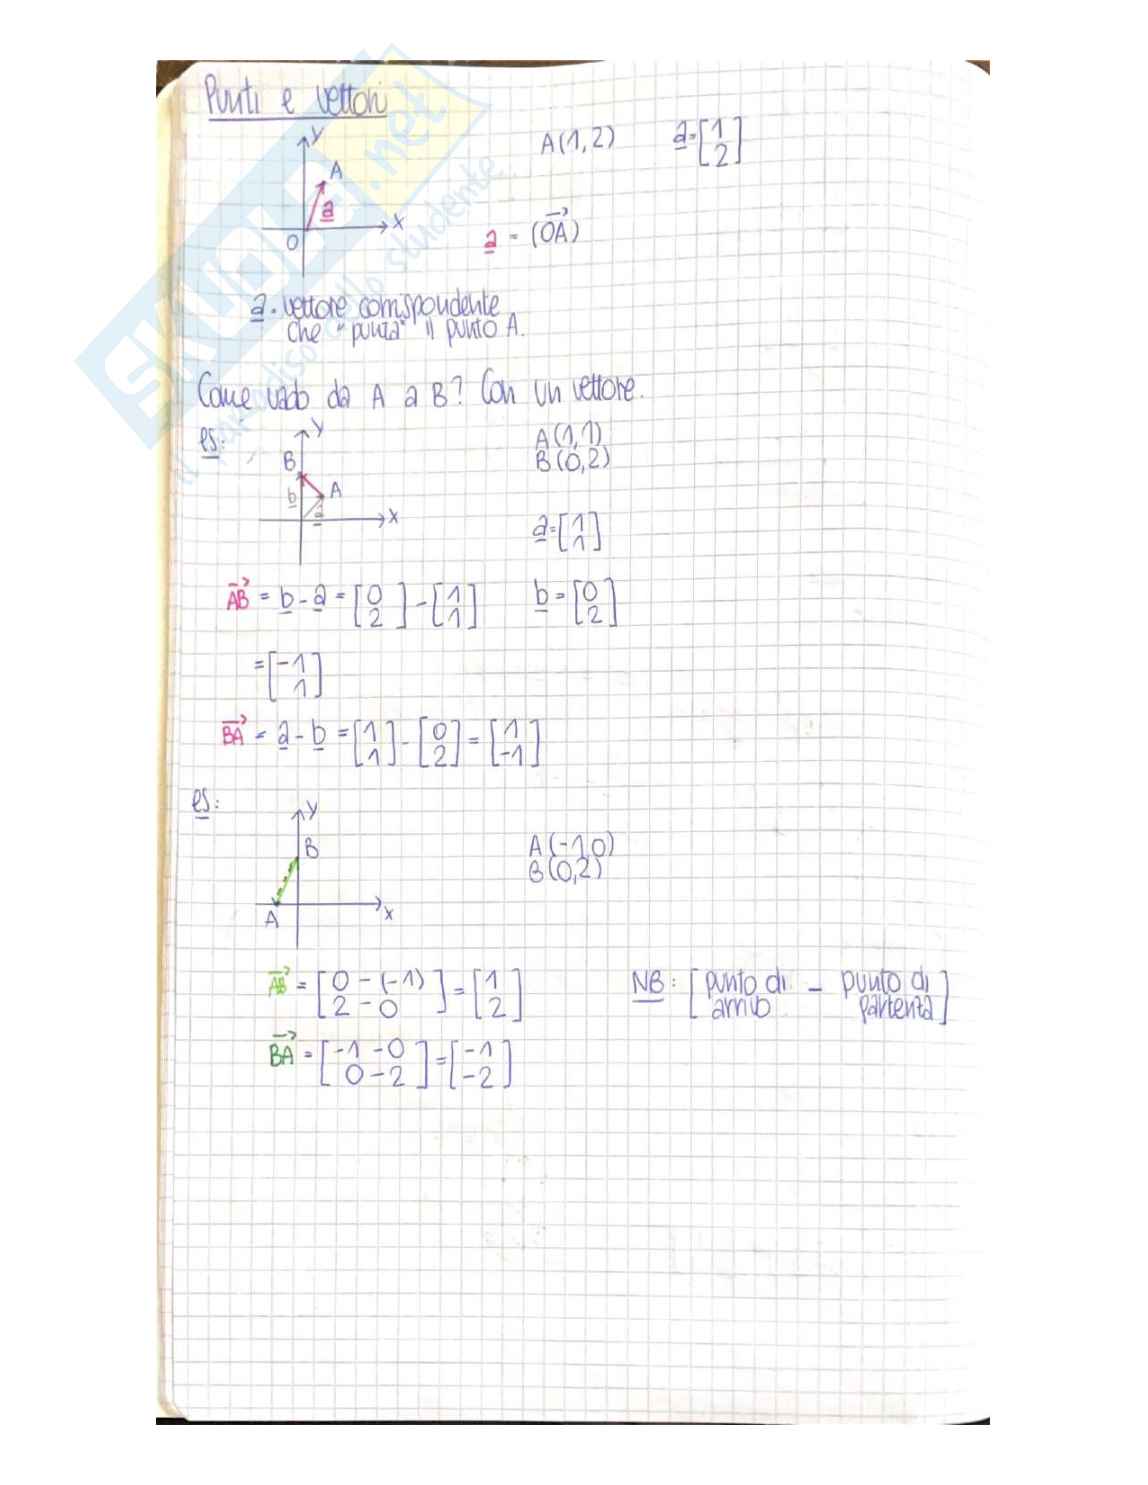 Punti e vettori
y
A
a
x
O
A(1,2) a = [1 2]
a = (OA)
a = vettore corrispondente
che "punta" il punto A.
Come vado da A a B? Con un vettore.
es:
y
B
b
A
a
x
A(1,1)
B(0,2)
a = [1 1]
AB = b - a = [0 2] - [1 1] b = [0 2]
= [-1 1]
BA = a - b = [1 1] - [0 2] = [1 -1]
es:
y
B
A
x
A(-1,0)
B(0,2)
AB = [0 - (-1) 2 - 0] = [1 2]
NB: [punto di arrivo - punto di partenza]
BA = [-1 - 0 0 - 2] = [-1 -2]
SKUOLA.net
il paradiso dello studente